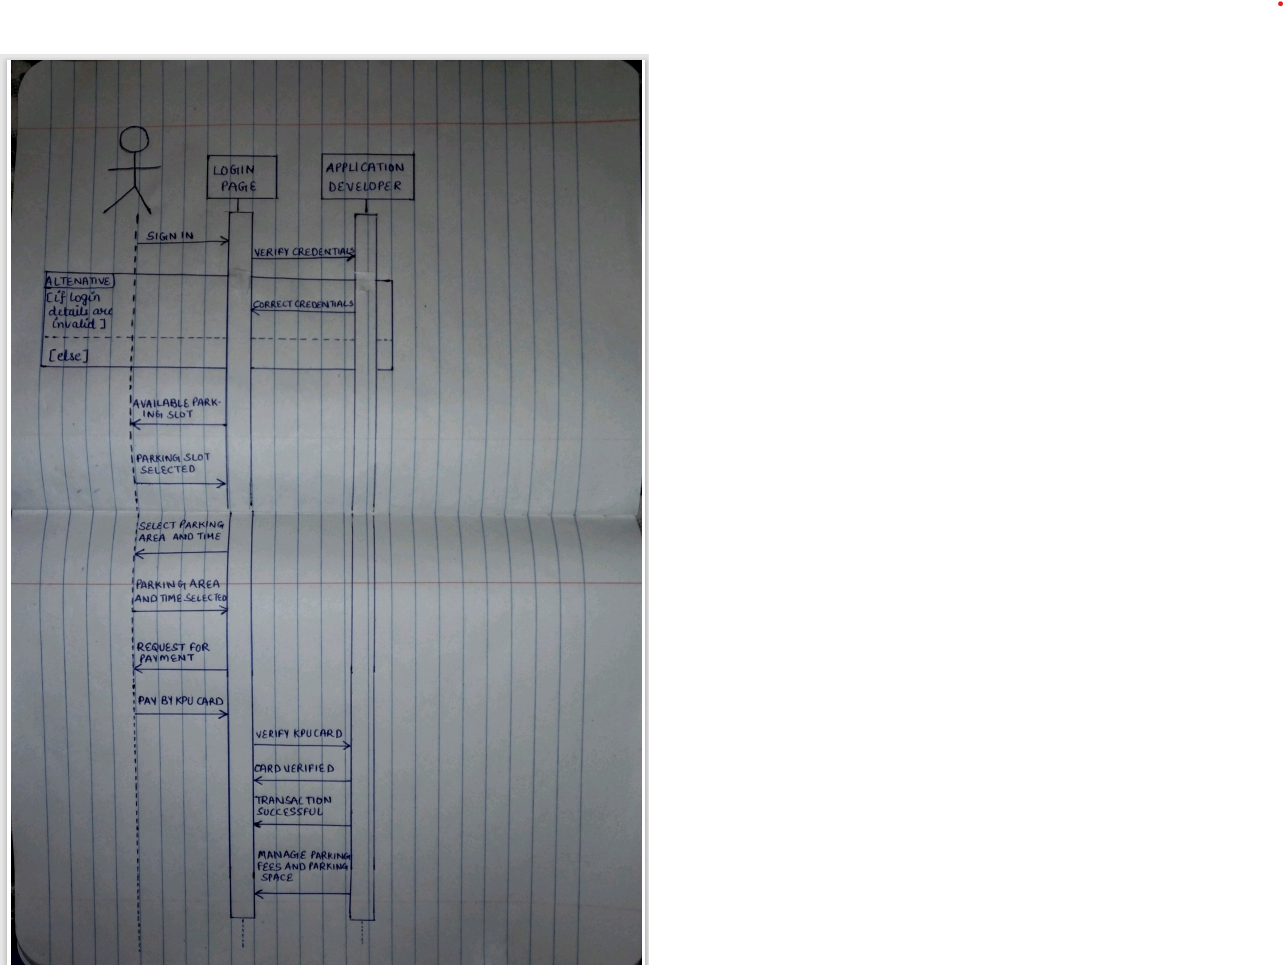 LOGIN
PAGE
APPLICATION
DEVELOPER
SIGN IN
VERIFY CREDENTIALS
ALTENATIVE
[if login
details are
invalid]
CORRECT CREDENTIALS
[else]
AVAILABLE PARK-
ING SLOT
PARKING SLOT
SELECTED
SELECT PARKING
AREA AND TIME
PARKING AREA
AND TIME SELECTED
REQUEST FOR
PAYMENT
PAY BY KPU CARD
VERIFY KPU CARD
CARD VERIFIED
TRANSACTION
SUCCESSFUL
MANAGE PARKING
FEES AND PARKING
SPACE